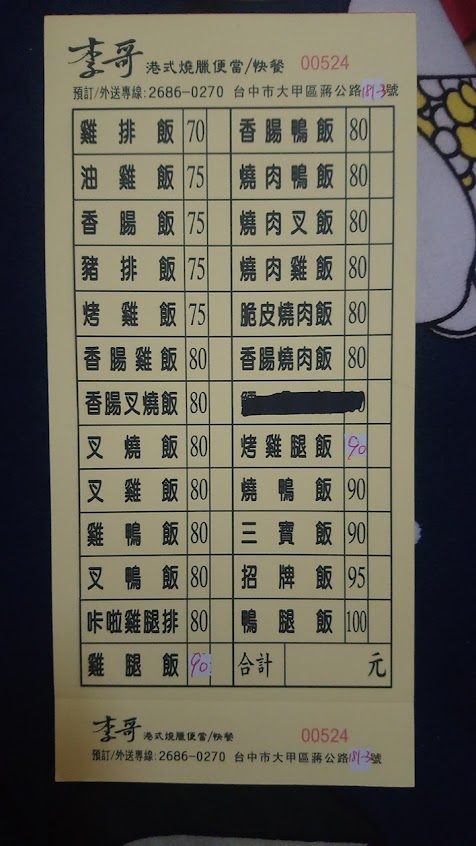 李哥 港式燒臘便當/快餐 00524
預訂/外送專線:2686-0270 台中市大甲區蔣公路181-3號
雞排飯 70 香腸鴨飯 80
油雞飯 75 燒肉鴨飯 80
香腸飯 75 燒肉叉飯 80
豬排飯 75 燒肉雞飯 80
烤雞飯 75 脆皮燒肉飯 80
香腸雞飯 80 香腸燒肉飯 80
香腸叉燒飯 80
叉燒飯 80 烤雞腿飯 90
叉雞飯 80 燒鴨飯 90
雞鴨飯 80 三寶飯 90
叉鴨飯 80 招牌飯 95
咔啦雞腿排 80 鴨腿飯 100
雞腿飯 90 合計 元
李哥 港式燒臘便當/快餐 00524
預訂/外送專線:2686-0270 台中市大甲區蔣公路181-3號